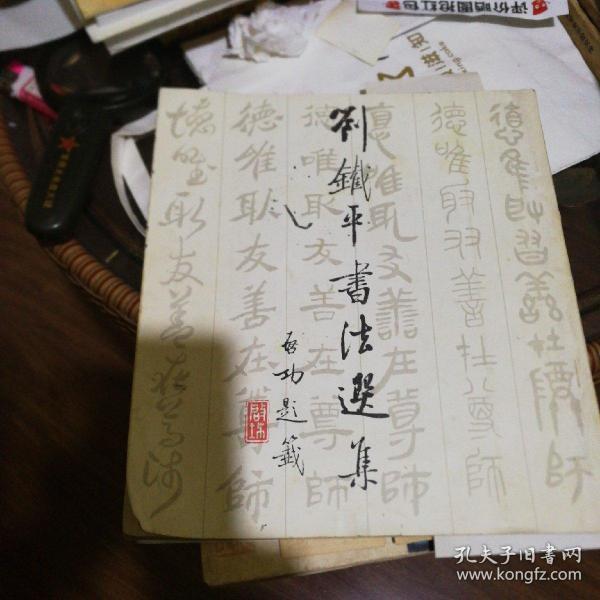 评价晒图抢红包
刘鐵平書法選集
启功題籤
啟功
德唯取友善在尊師
德唯取友善在尊師
德唯取友善在尊師
德唯取友善在尊師
德唯取友善在尊師
德唯取友善在尊師
孔夫子旧书网
www.kongfz.com